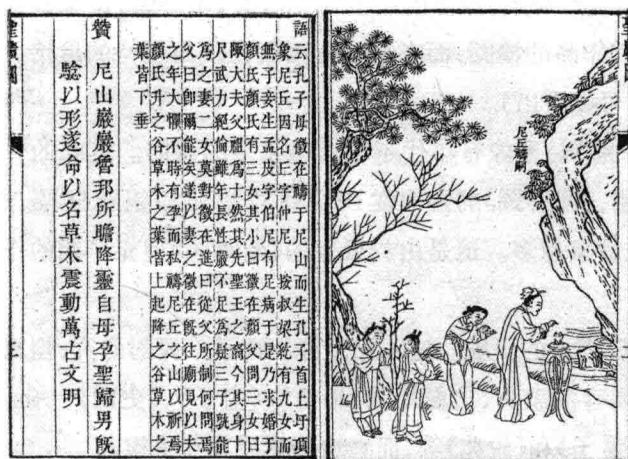 聖蹟圖
尼丘禱嗣
語云孔子母徵在禱于尼山而生孔子首上圩頂
象尼丘因名丘字仲尼 按叔梁紇有九女而
無子妾生孟皮字伯尼有足病于是乃求婚于
顏氏顏氏有三女其小曰徵在顏父問三女曰
陬大夫父祖爲士然其先聖王之裔今其身十
尺武力絕倫雖年長性嚴不足爲疑三子孰能
爲之妻二女莫對徵在進曰從父所制何問焉
父曰卽爾能矣遂以妻之徵在旣往廟見以夫
之年大懼不時有孕而私禱尼丘之山以祈焉
顏氏升之谷草木之葉皆上起降之谷草木之
葉皆下垂
贊 尼山巖巖魯邦所瞻降靈自母孕聖歸男旣
驗以形遂命以名草木震動萬古文明
聖蹟圖